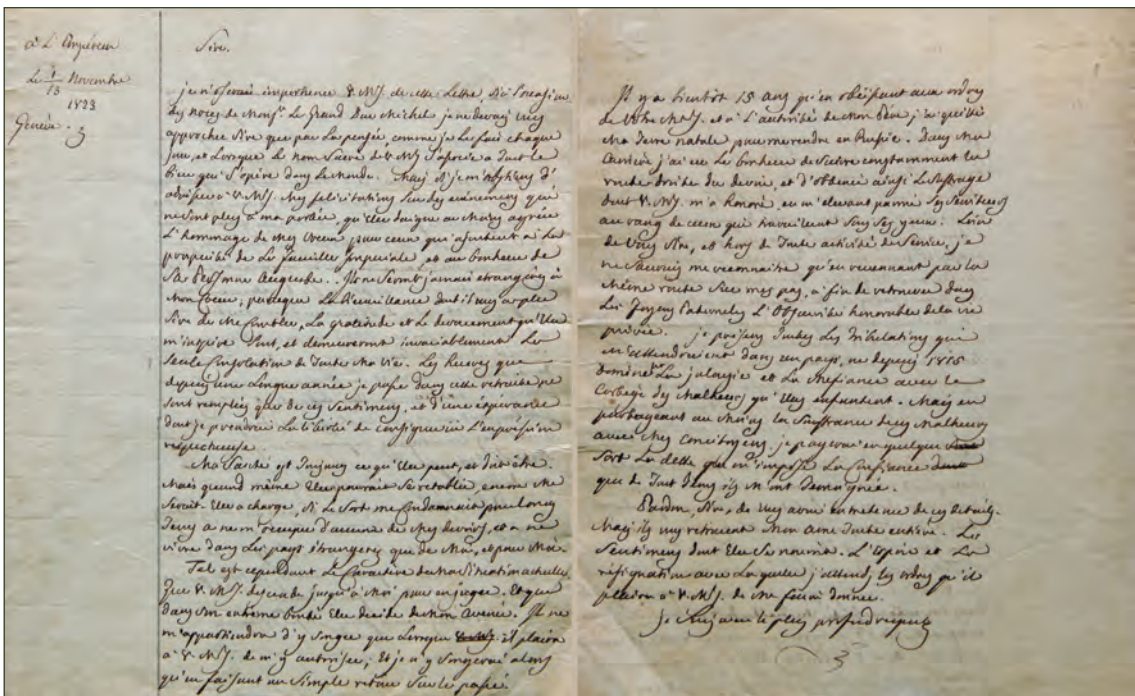 à L'Empereur
Le 1/13 Novembre
1823
Genève.
Sire.
je n'oserais importuner V. MJ. de cette Lettre. Si à l'occasion
des noces de Monsr. Le Grand Duc Michel je ne devais m'en
approcher Sire que par La pensée, comme je Le fais chaque
jour, et Lorsque Le nom Sacré de V. MJ. S'associe à Tout Le
bien qui S'opère dans Le Monde. Mais Si je m'abstiens d'
adresser à V. MJ. Mes félicitations Sur des événemens qui
ne Sont plus à ma portée, qu'Elle daigne au Moins agréer
L'hommage de Mes voeux pour ceux qui ajoutent à La
prosperité de La famille Imperiale, et au bonheur de
Sa Personne Auguste. Ils ne Seront jamais etrangers à
Mon Coeur; puisque La Bienveillance dont il vous a plu
Sire de Me Combler, La gratitude et Le devouement qu'Elle
m'inspire Sont, et demeureront invariablement La
Seule Consolation de Toute Ma vie. Les heures que
depuis une Longue année je passe dans cette retraite ne
sont remplies que de ces Sentimens, et d'une espérance
dont je prendrai La liberté de consigner ici L'expression
respectueuse.
Ma Santé est Toujours ce qu'Elle peut, et doit être.
Mais quand même Elle pourrait Se retablir, encore Me
Serait-Elle à charge, Si Le Sort me Condamnait pour Long
Tems à ne m'occuper d'aucun de Mes devoirs, et à ne
vivre dans Les pays étrangers que de Moi, et pour Moi.
Tel est cependant Le Caractère de Ma Situation actuelle.
Que V. MJ. descende jusqu'à Moi pour en juger. Et que
dans Son extrême bonté Elle decide de Mon Avenir. Il ne
m'appartiendra d'y Songer que Lorsque il plaira
à V. MJ. de m'y autoriser; Et je n'y Songerai alors
qu'en faisant un Simple retour Sur Le passé.
Il y a bientôt 15 ans qu'en obéissant aux ordres
de Votre MJ. et à L'autorité de Mon Père, j'ai quitté
Ma Terre natale pour me rendre en Russie. Dans Ma
Carrière j'ai eu Le bonheur de Suivre constamment La
route droite du devoir, et d'obtenir ainsi Le Suffrage
dont V. MJ. m'a honoré, en m'elevant parmi Ses Serviteurs
au rang de ceux qui travaillent Sous Ses yeux. Loin
de Vous Sire, et hors de Toute activité de Service, je
ne Saurais me reconnaitre qu'en revenant par La
Même route Sur mes pas, à fin de retrouver dans
Les foyers Paternels L'Obscurité honorable de la vie
privée. je prévois Toutes Les Tribulations qui
m'attendraient dans un pays, où depuis 1815
dominent La jalousie et La Mefiance avec Le
Cortège des Malheurs qu'Elles enfantent. Mais en
partageant au Moins La Souffrance de ces Malheurs
avec Mes Concitoyens, je payerai en quelque
Sort La dette que m'impose La Confiance
que de Tout Tems ils M'ont Temoignée.
Pardon, Sire, de vous avoir entretenu de ces details.
Mais ils vous retracent Mon Ame Toute entière. Les
Sentimens dont Elle Se nourrit. L'Espoir et La
résignation avec Laquelle j'attends Les ordres qu'il
plaira à V. MJ. de Me faire donner.
je Suis avec Le plus profond respect